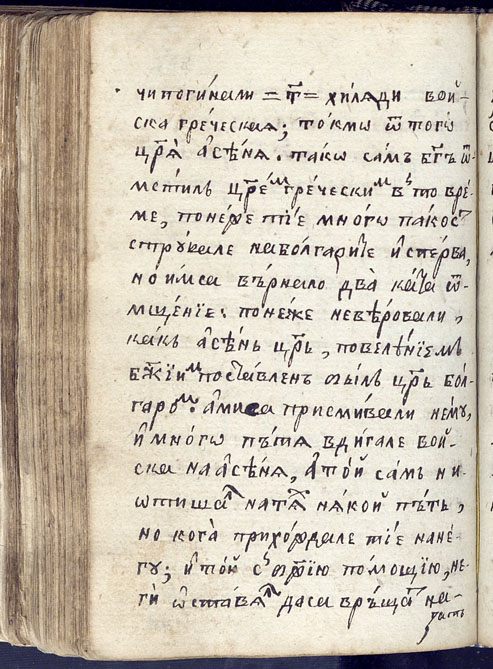 чи погинали =т҃= хиляди вой-
ска греческая; токмо ѿ тогѡ
цр҃ѧ асѣня. такѡ самъ бг҃ъ ѿ-
мстилъ цр҃емъ гречески м в то вре-
ме, понеже тіе многѡ пакост
струвале на болгарїте и сперва,
но им са вѣрнало два ката ѿ-
мщенїе: понеже невѣровали,
какъ асѣнь цр҃ь, повелѣнїемъ
бж҃їим поставленъ былъ цр҃ь бол-
гаром: ами са присмивали нему,
и многѡ пѫтя вдигале вой-
ска на асѣня, а той самъ ни
ѡтишал на тѧх някой пѫть,
но кога приходале тіе на не-
гу; и той с бж҃їю помощїю, не-
ги ѡставял да са врѣщат на-